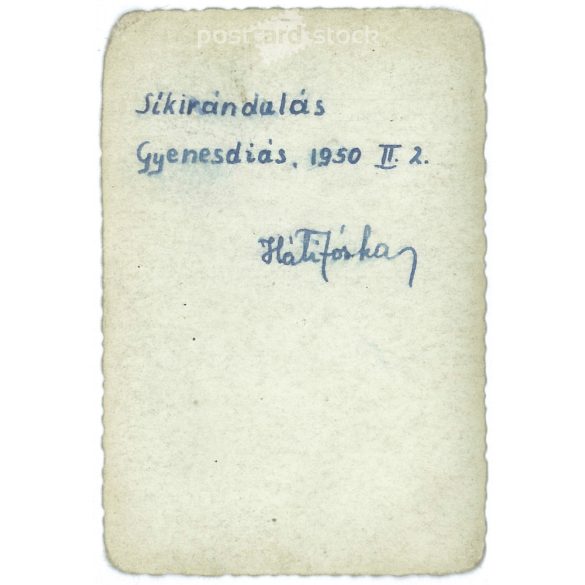 postcard stock
Síkirándulás
Gyenesdiás, 1950 II. 2.